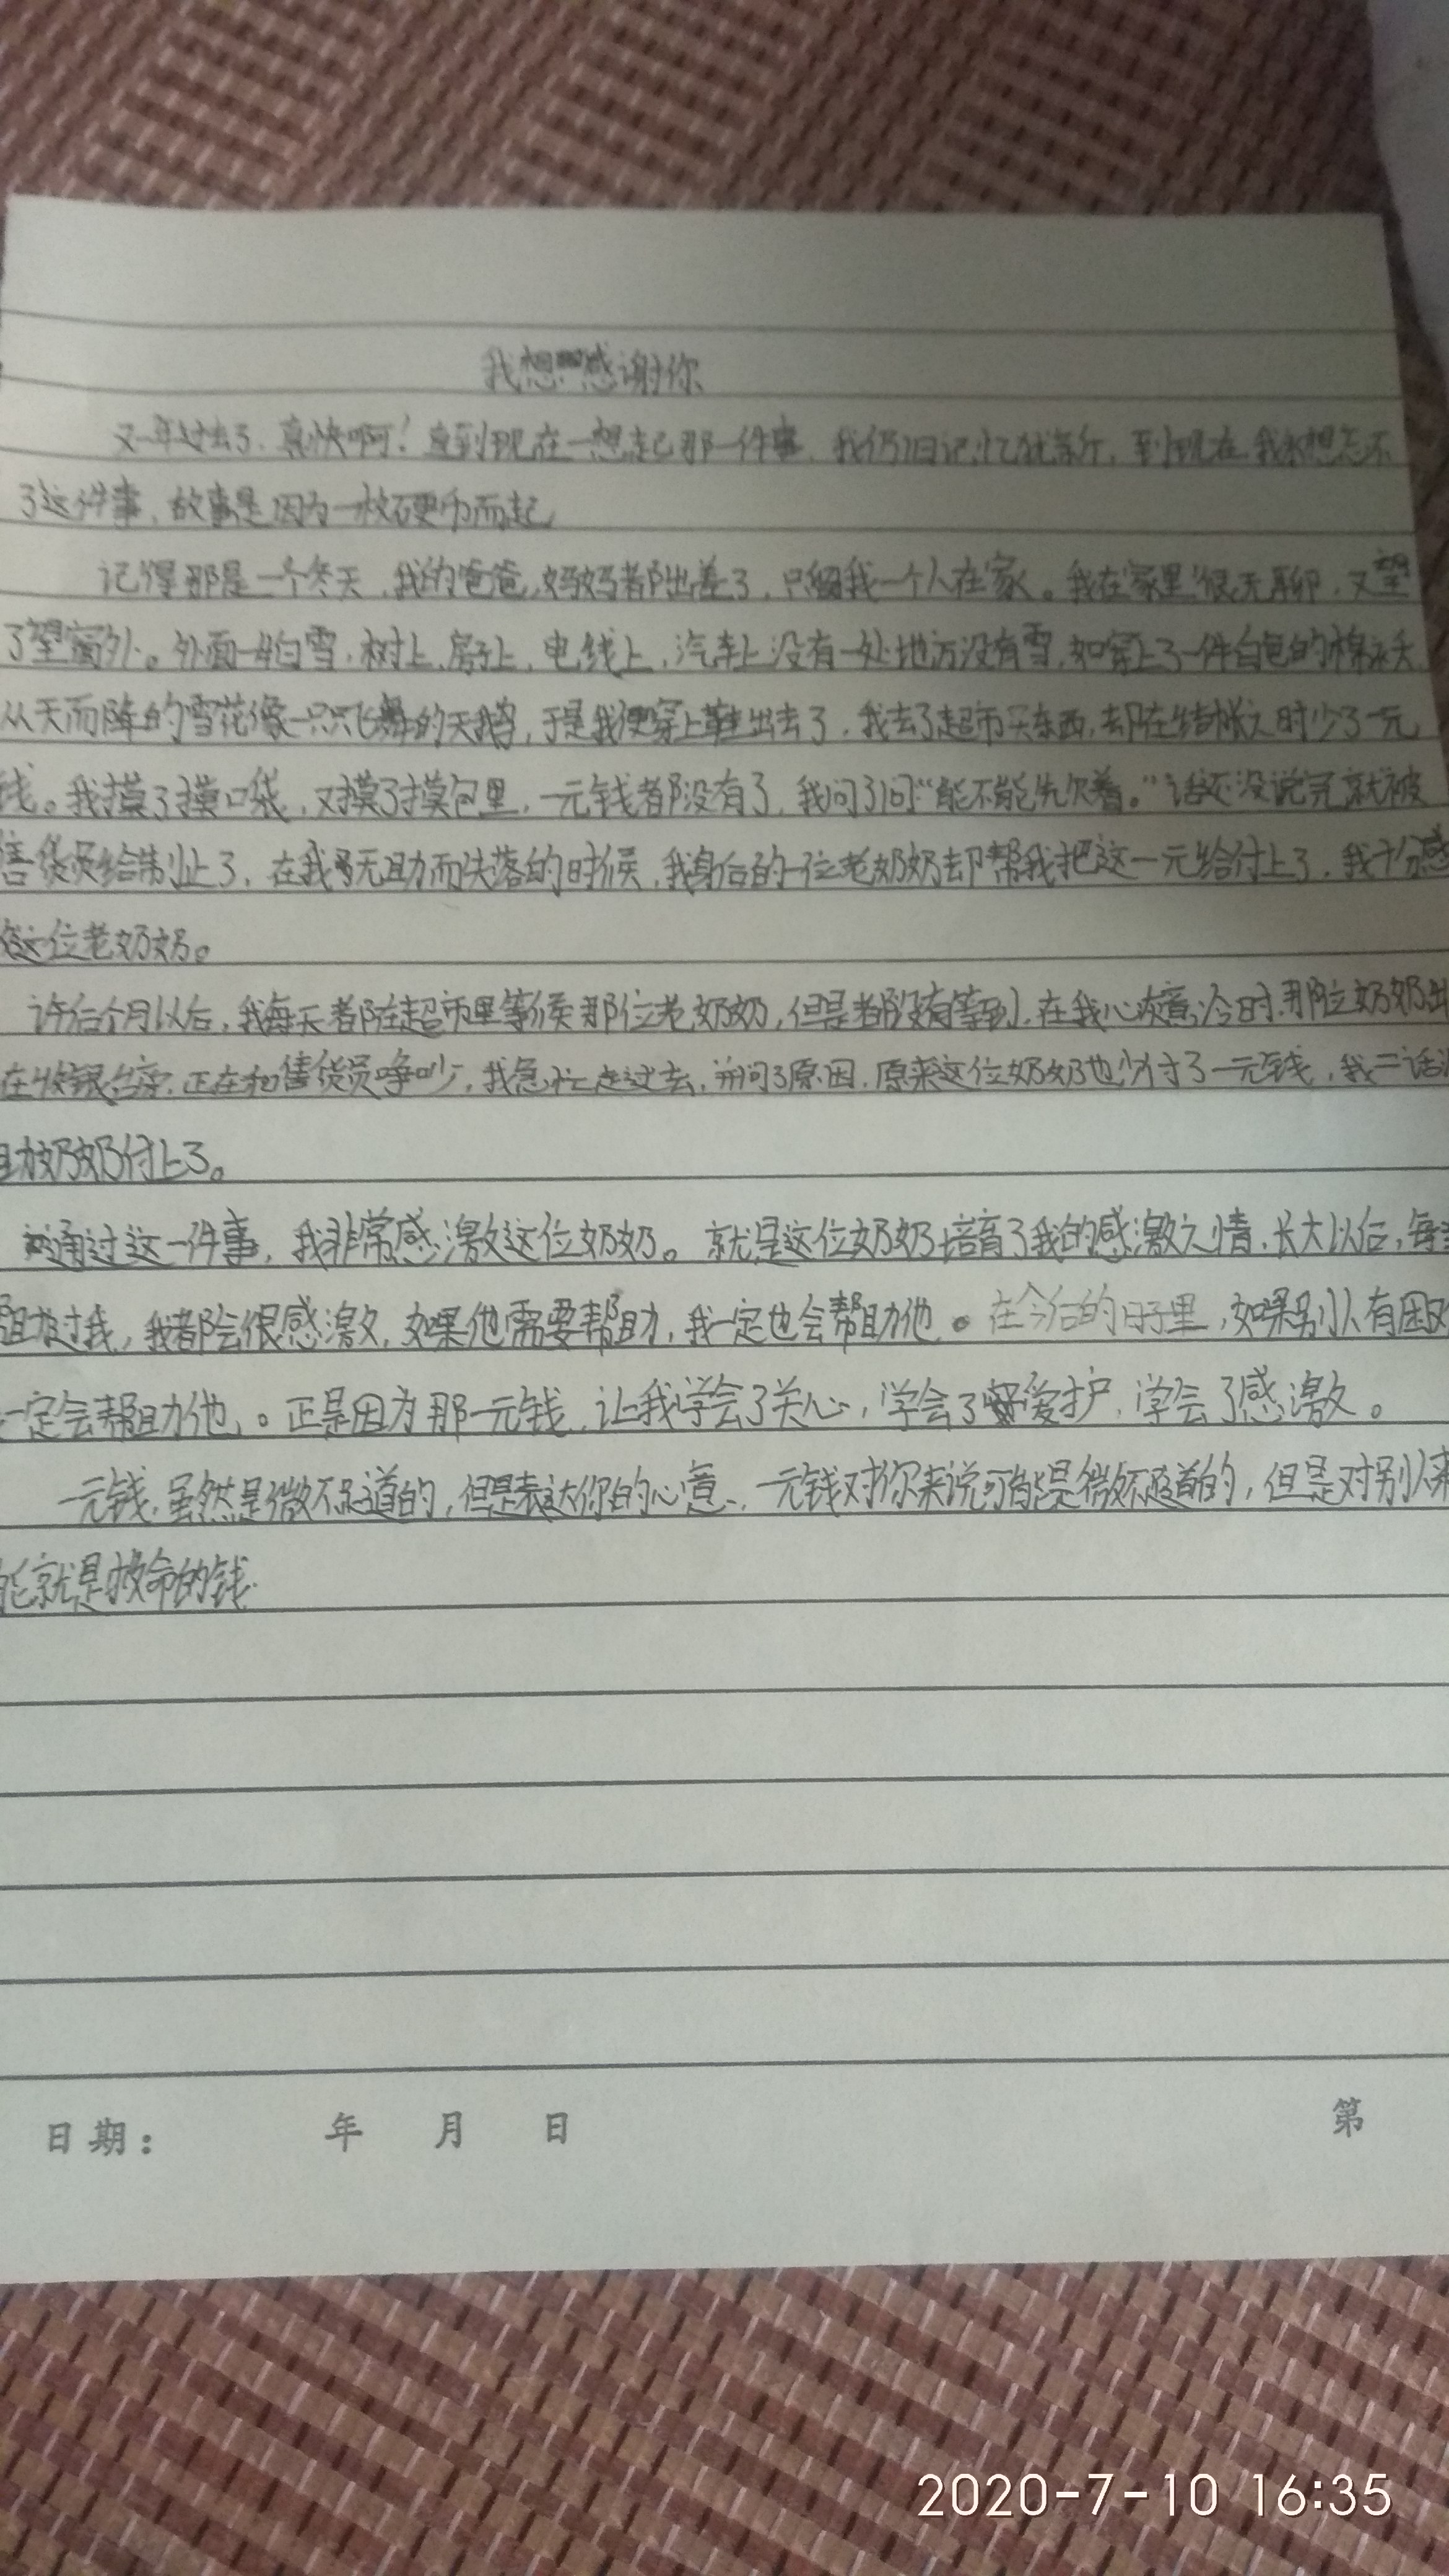 我想感谢你
又一年过去了,真快啊!直到现在一想起那一件事,我仍旧记忆犹新,到现在我永想忘不
了这件事,故事是因为一枚硬币而起
记得那是一个冬天,我的爸爸,妈妈都出差了,只留我一个人在家。我在家里很无聊,又望
了望窗外。外面一片白雪,树上,房子上,电线上,汽车上没有一处地方没有雪,如穿上了一件白色的棉袄
从天而降的雪花像一只只飞舞的天鹅,于是我便穿上鞋出去了,我去了超市买东西,却在结帐时少了一元
钱。我摸了摸口袋,又摸了摸包里,一元钱都没有了,我问了问“能不能先欠着。”话还没说完就被
售货员给制止了,在我无助而失落的时候,我身后的一位老奶奶却帮我把这一元给付上了,我十分感
这位老奶奶。
许后个月以后,我每天都在超市里等候那位老奶奶,但是都没有等到,在我心灰意冷时,那位奶奶出
在收银台旁,正在和售货员争吵,我急忙走过去,并问了原因,原来这位奶奶也少付了一元钱,我二话
助奶奶付上了。
通过这一件事,我非常感激这位奶奶。就是这位奶奶培育了我的感激之情,长大以后,每
助过我,我都会很感激,如果他需要帮助,我一定也会帮助他。在今后的日子里,如果别人有困
一定会帮助他,。正是因为那一元钱,让我学会了关心,学会了爱护,学会了感激。
一元钱,虽然是微不足道的,但是表达你的心意,一元钱对你来说可能是微不足道的,但是对别人来
能就是救命的钱.
日期: 年 月 日 第
2020-7-10 16:35